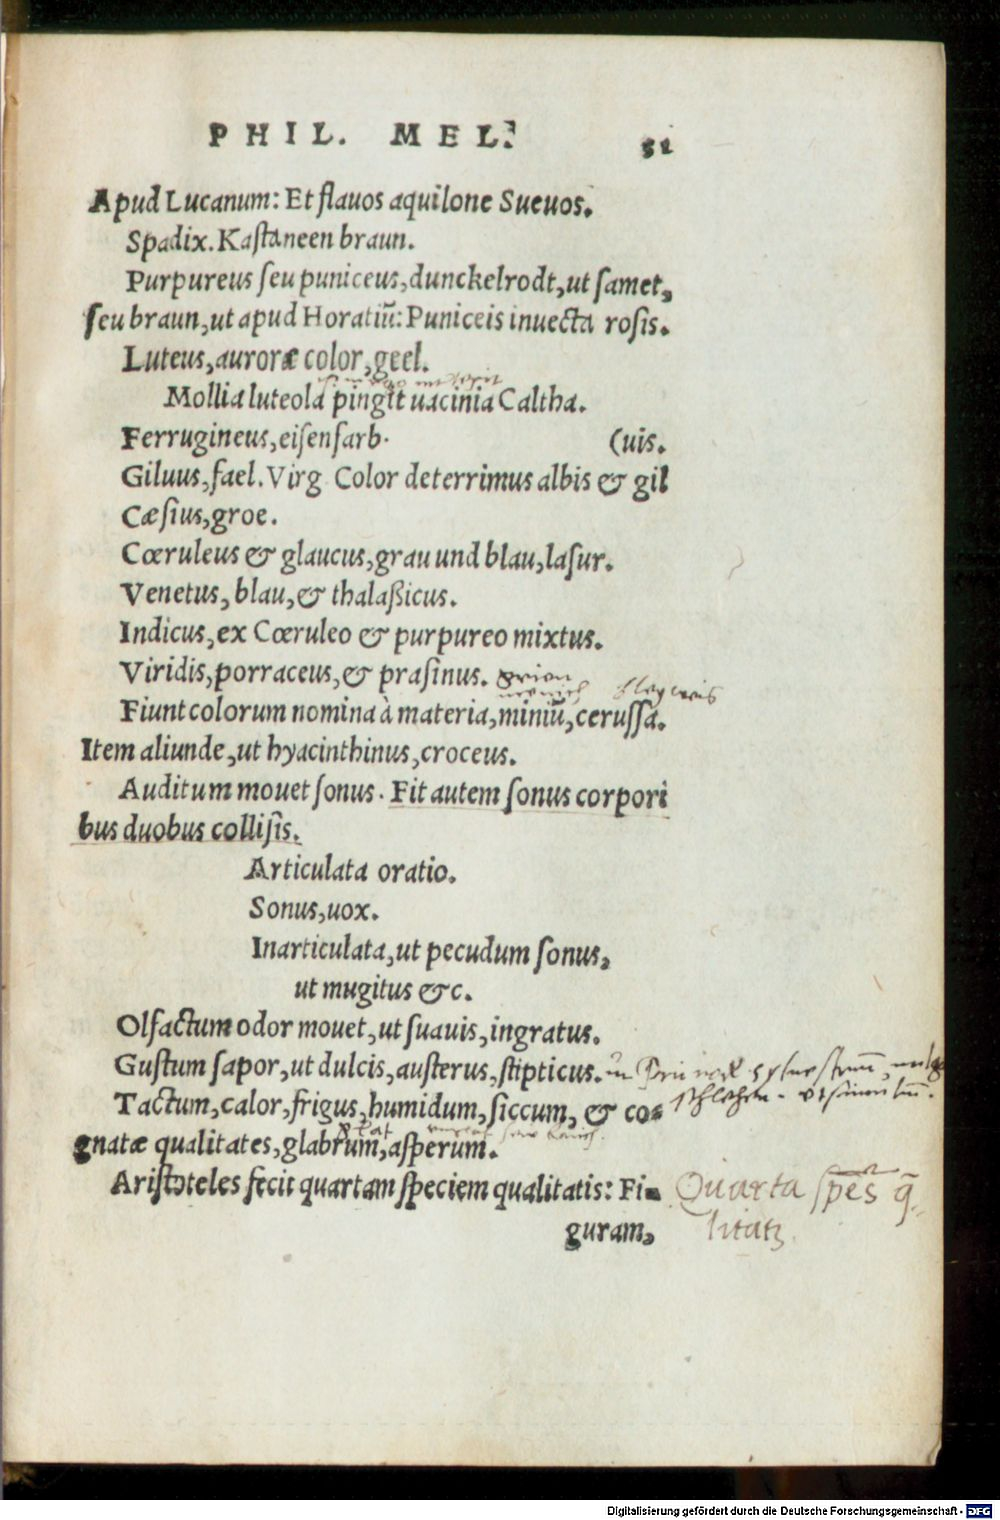 PHIL. MEL. 51
Apud Lucanum: Et flauos aquilone Sueuos.
Spadix. Kaſtaneen braun.
Purpureus ſeu puniceus, dunckelrodt, ut ſamet,
ſeu braun, ut apud Horatiũ: Puniceis inuecta roſis.
Luteus, auroræ color, geel.
Mollia luteola pingit uacinia Caltha.
Ferrugineus, eiſenfarb. (uis.
Giluus, fael. Virg Color deterrimus albis & gil
Cæſius, groe.
Cœruleus & glaucus, grau und blau, laſur.
Venetus, blau, & thalaßicus.
Indicus, ex Cœruleo & purpureo mixtus.
Viridis, porraceus, & praſinus.
Fiunt colorum nomina à materia, miniũ, ceruſſa.
Item aliunde, ut hyacinthinus, croceus.
Auditum mouet ſonus. Fit autem ſonus corpori
bus duobus colliſis.
Articulata oratio.
Sonus, uox.
Inarticulata, ut pecudum ſonus,
ut mugitus &c.
Olfactum odor mouet, ut ſuauis, ingratus.
Guſtum ſapor, ut dulcis, auſterus, ſtipticus.
Tactum, calor, frigus, humidum, ſiccum, & co-
gnatæ qualitates, glabrum, aſperum.
Ariſtoteles fecit quartam ſpeciem qualitatis: Fi- Quarta ſpēs q̄
guram, litatꝫ
Digitalisierung gefördert durch die Deutsche Forschungsgemeinschaft - DFG